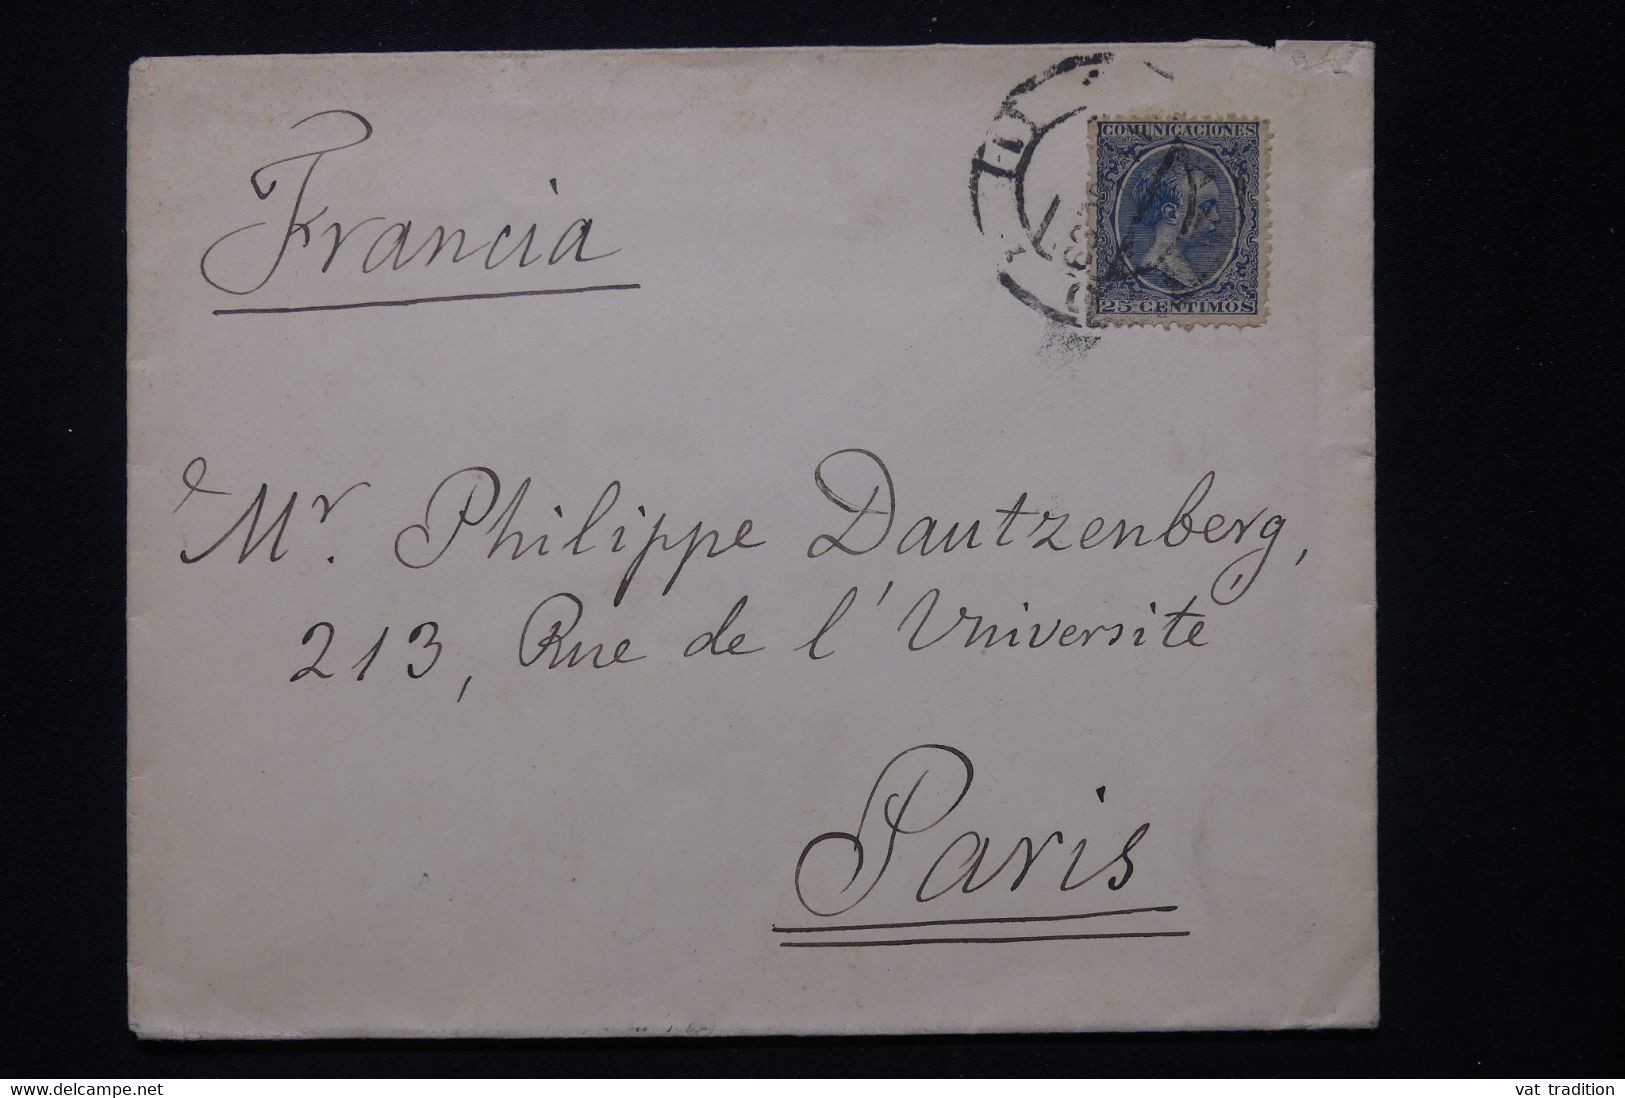 Francia
COMUNICACIONES
25 CENTIMOS
Mr. Philippe Dautzenberg,
213, Rue de l'Université
Paris
© delcampe.net
vat tradition